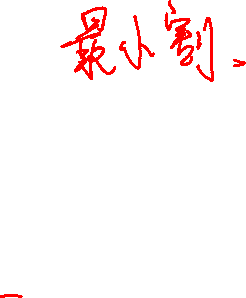 最小割